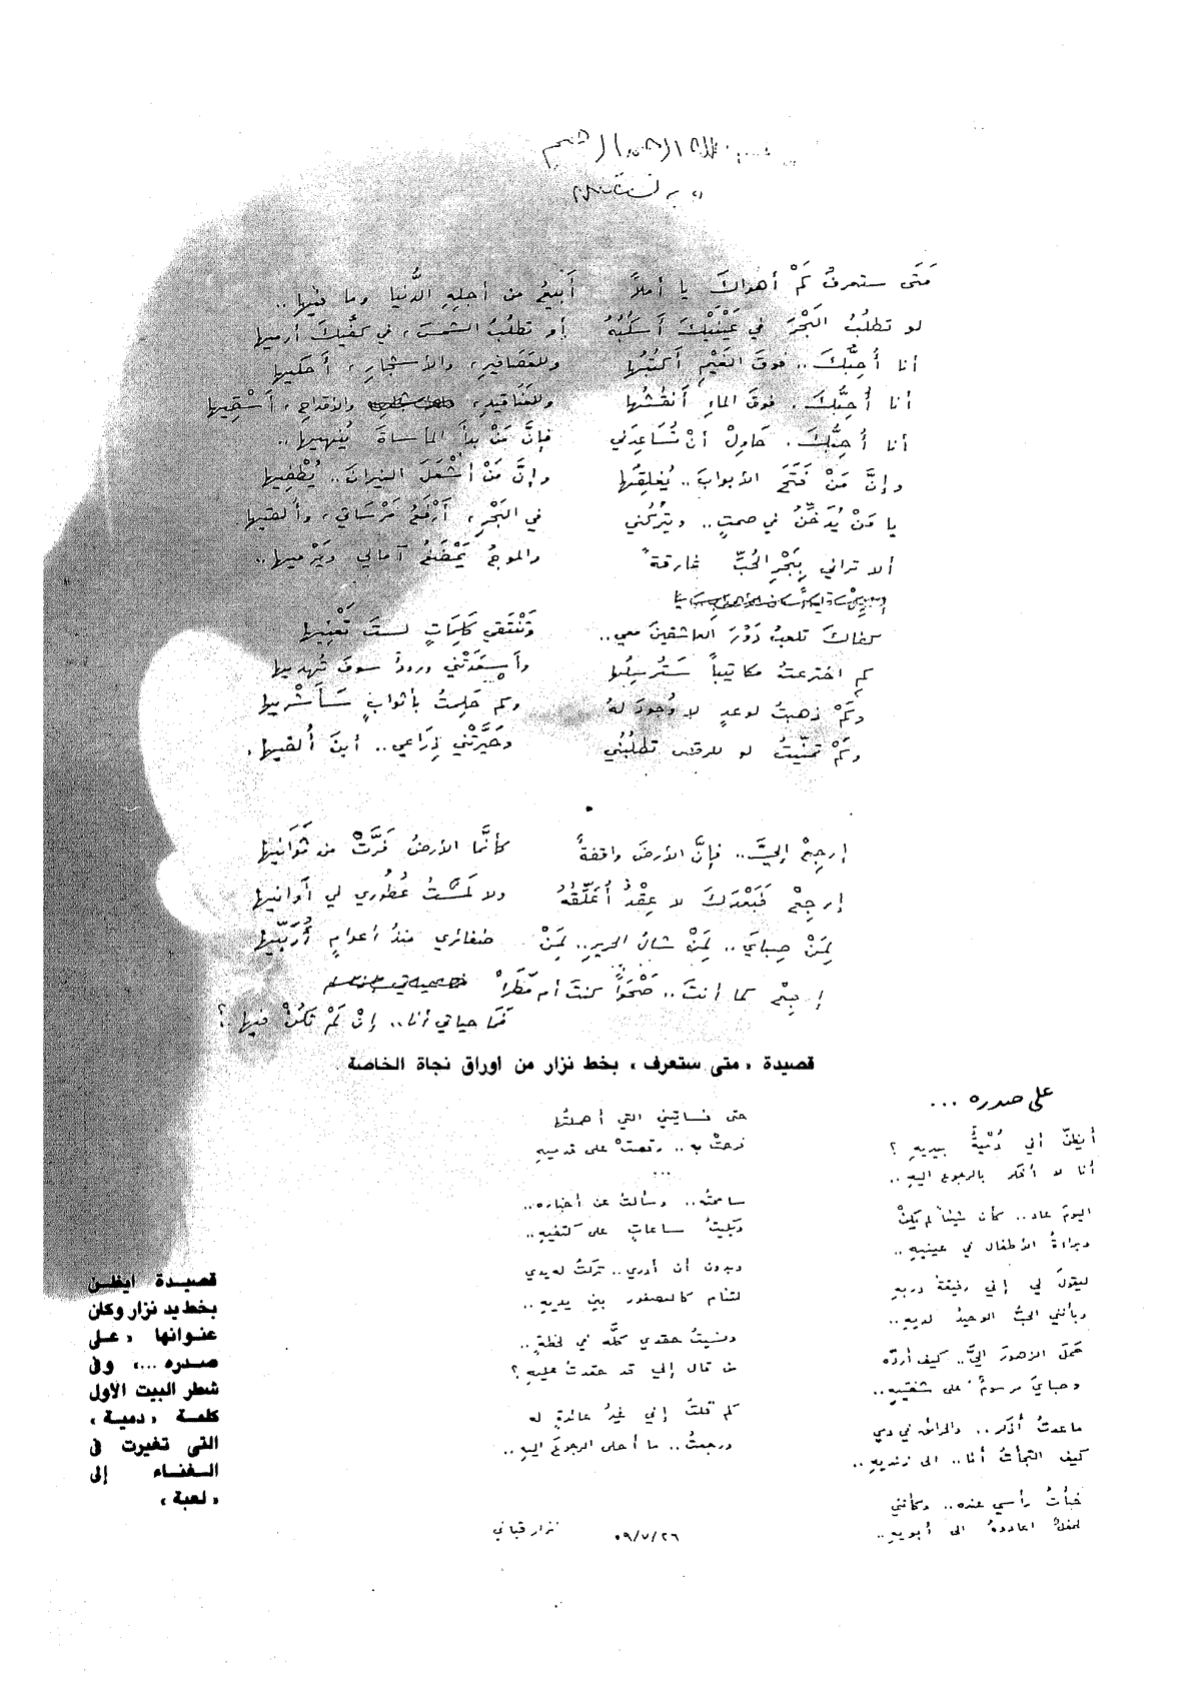 بسم الله الرحمن الرحيم
وبه نستعين
مَتَى ستعرفُ كَمْ أهواكَ يا أملاً أَبيعُ من أجلِهِ الدُّنيا وما فيها..
لو تطلُبُ البَحْرَ في عَيْنَيْكَ أَسكُبُهُ أو تطلُبُ الشمسَ، في كفَّيكَ أرميها
أنا أُحِبُّكَ.. فوقَ الغَيْمِ أكتُبُها وللعَصَافيرِ، والأشجارِ، أَحكيها
أنا أُحِبُّكَ. فوقَ الماءِ أَنقُشُها وللعَنَاقيدِ، والأقداحِ، أَسْقِيها
أنا أُحِبُّكَ. حَاوِلْ أنْ تُسَاعِدَني فإنَّ مَنْ بدأَ المأساةَ يُنهيها..
وإنَّ مَنْ فَتَحَ الأبوابَ.. يُغلِقُها وإنَّ مَنْ أَشْعَلَ النيرانَ.. يُطْفِيها
يا مَنْ يُدَخِّنُ في صمتٍ.. ويَتْرُكُني في البَحْرِ، أَرْفَعُ مَرْسَاتي، وأُلقيها
ألا تراني بِبَحْرِ الحُبِّ غارقةً والموجُ يَمْضَغُ آمالي ويَرْميها..
كفاكَ تلعبُ دَوْرَ العاشقينَ معي.. وتَنْتَقي كَلِمَاتٍ لستَ تَعْنِيها
كم اخترعتُ مكاتيباً سَتُرسِلُها وأَسعَدَتْني ورودٌ سوفَ تُهديها
وكَمْ ذهبتُ لوعدٍ لا وُجودَ لهُ وكم حَلِمتُ بأثوابٍ سَأَشْريها
وكَمْ تمنّيتُ لو للرقصِ تطلُبُني وحَيَّرَتْني ذِرَاعي.. أينَ أُلقيها.
إرجِعْ إليَّ.. فإنَّ الأرضَ واقفةٌ كأنَّما الأرضُ فَرَّتْ من ثَوَانيها
إرجِعْ فَبَعْدَكَ لا عِقْدٌ أُعَلِّقُهُ ولا لَمَسْتُ عُطُوري في أَوَانيها
لِمَنْ صِبايَ.. لِمَنْ شالُ الحريرِ.. لِمَنْ ضفائري منذُ أعوامٍ أُرَبّيها
إرجِعْ كما أنتَ.. صَحْواً كنتَ أم مَطَراً
فَمَا حياتي أنا.. إنْ لَمْ تكُنْ فيها.؟
قصيدة «متى ستعرف» بخط نزار من اوراق نجاة الخاصة
على صدره ...
أيظنّ أني دُمْيةٌ بيديهِ ؟
أنا لا أفكر بالرجوع اليهِ..
اليومَ عاد.. كأن شيئاً لم يكنْ
وبراءةُ الأطفال في عينيهِ..
ليقولَ لي إني رفيقةُ دربهِ
وبأنني الحبُّ الوحيدُ لديهِ..
حَملَ الزهورَ اليَّ.. كيف أردّه
وصبايَ مرسومٌ على شفتيهِ..
ما عدتُ أذكر.. والحرائق في دمي
كيف التجأتُ أنا.. الى زنديهِ..
خبأتُ رأسي عنده.. وكأنني
طفلٌ اعادوهُ الى أبويهِ..
حتى فساتيني التي أهملتُها
فرحتْ به.. رقصتْ على قدميهِ
...
سامحتُه.. وسألتُ عن أخباره..
وبكيتُ ساعاتٍ على كتفيهِ..
وبدون أن أدري.. تركتُ له يدي
لتنام كالعصفور بين يديهِ..
ونسيتُ حقدي كلَّه في لحظةٍ..
من قال إني قد حقدتُ عليهِ ؟
كم قلتُ إني غيرُ عائدةٍ له
ورجعتُ.. ما أحلى الرجوعَ اليهِ..
نزار قباني ٥٩/٧/٢٦
قصيدة ايظن
بخط يد نزار وكان
عنوانها «على
صدره ...» وفى
شطر البيت الأول
كلمة «دمية»
التى تغيرت فى
الغناء إلى
«لعبة»